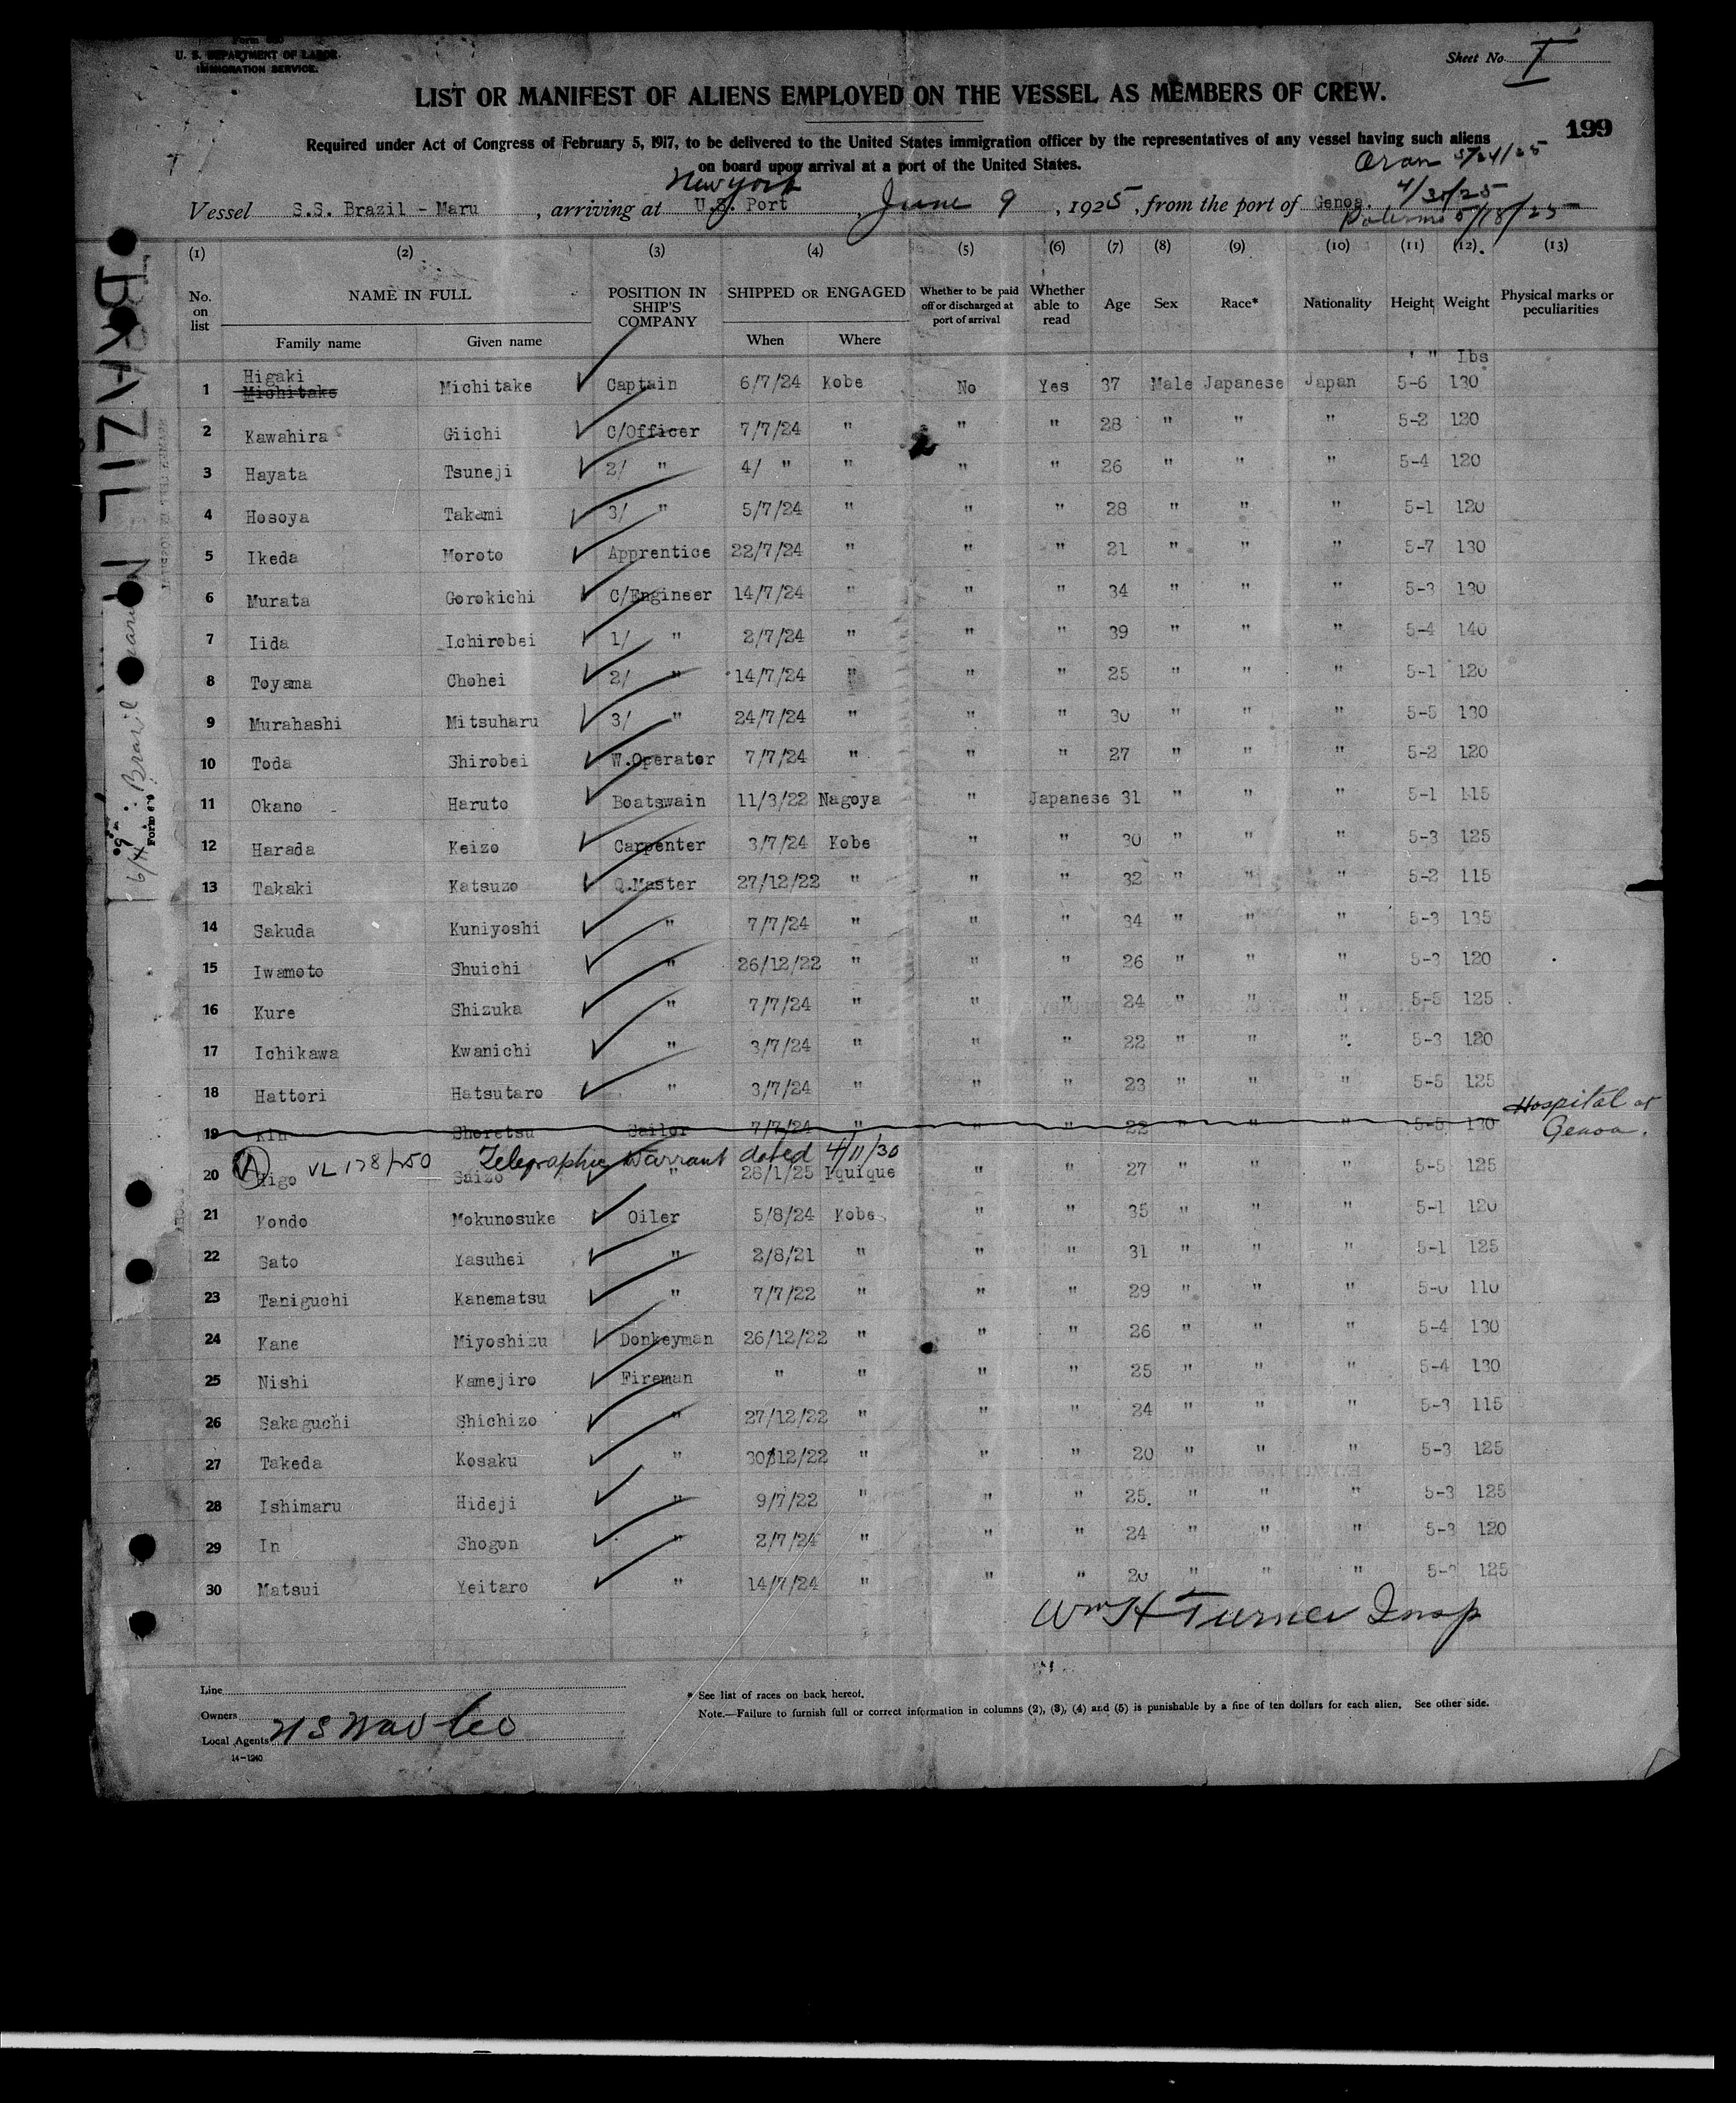 Form 680
U. S. DEPARTMENT OF LABOR
IMMIGRATION SERVICE.
Sheet No. I
LIST OR MANIFEST OF ALIENS EMPLOYED ON THE VESSEL AS MEMBERS OF CREW.
199
Required under Act of Congress of February 5, 1917, to be delivered to the United States immigration officer by the representatives of any vessel having such aliens
on board upon arrival at a port of the United States.
Oran 5/24/25
New York
4/30/25
Vessel S.S. Brazil - Maru , arriving at U.S. Port , June 9 , 1925, from the port of Genoa.
Palermo 5/18/25
(1) (2) (3) (4) (5) (6) (7) (8) (9) (10) (11) (12) (13)
No. on list NAME IN FULL Family name Given name POSITION IN SHIP'S COMPANY SHIPPED OR ENGAGED When Where Whether to be paid off or discharged at port of arrival Whether able to read Age Sex Race* Nationality Height Weight Physical marks or peculiarities
' " Lbs
1 Higaki Michitake Michitake Captain 6/7/24 Kobe No Yes 37 Male Japanese Japan 5-6 130
2 Kawahira Giichi C/Officer 7/7/24 " " " 28 " " " 5-2 120
3 Hayata Tsuneji 2/ " 4/ " " " " 26 " " " 5-4 120
4 Hosoya Takami 3/ " 5/7/24 " " " 28 " " " 5-1 120
5 Ikeda Moroto Apprentice 22/7/24 " " " 21 " " " 5-7 130
6 Murata Gorokichi C/Engineer 14/7/24 " " " 34 " " " 5-3 130
7 Iida Ichirobei 1/ " 2/7/24 " " " 39 " " " 5-4 140
8 Toyama Chohei 2/ " 14/7/24 " " " 25 " " " 5-1 120
9 Murahashi Mitsuharu 3/ " 24/7/24 " " " 30 " " " 5-5 130
10 Toda Shirobei W.Operator 7/7/24 " " " 27 " " " 5-2 120
11 Okano Haruto Boatswain 11/3/22 Nagoya " Japanese 31 " " " 5-1 115
12 Harada Keizo Carpenter 3/7/24 Kobe " " 30 " " " 5-3 125
13 Takaki Katsuzo Q.Master 27/12/22 " " " 32 " " " 5-2 115
14 Sakuda Kuniyoshi " 7/7/24 " " " 34 " " " 5-3 135
15 Iwamoto Shuichi " 26/12/22 " " " 26 " " " 5-3 120
16 Kure Shizuka " 7/7/24 " " " 24 " " " 5-5 125
17 Ichikawa Kwanichi " 3/7/24 " " " 22 " " " 5-3 120
18 Hattori Hatsutaro " 3/7/24 " " " 23 " " " 5-5 125
Hospital at
19 Rin Shoretsu Sailor 7/7/24 " " " 22 " " " 5-5 130 Genoa.
A VL 178/250 Telegraphic Warrant dated 4/11/30
20 Higo Saizo " 28/1/25 Iquique " " 27 " " " 5-5 125
21 Kondo Mokunosuke Oiler 5/8/24 Kobe " " 35 " " " 5-1 120
22 Sato Yasuhei " 2/8/21 " " " 31 " " " 5-1 125
23 Taniguchi Kanematsu " 7/7/22 " " " 29 " " " 5-0 110
24 Kane Miyoshizu Donkeyman 26/12/22 " " " 26 " " " 5-4 130
25 Nishi Kamejiro Fireman " " " " 25 " " " 5-4 130
26 Sakaguchi Shichizo " 27/12/22 " " " 24 " " " 5-3 115
27 Takeda Kosaku " 30/12/22 " " " 20 " " " 5-3 125
28 Ishimaru Hideji " 9/7/22 " " " 25. " " " 5-3 125
29 In Shogon " 2/7/24 " " " 24 " " " 5-3 120
30 Matsui Yeitaro " 14/7/24 " " " 20 " " " 125
Wm H Turner Insp
Line
Owners
Local Agents
14-1240
* See list of races on back hereof.
Note.—Failure to furnish full or correct information in columns (2), (3), (4) and (5) is punishable by a fine of ten dollars for each alien. See other side.
BRAZIL M
Brazil Maru